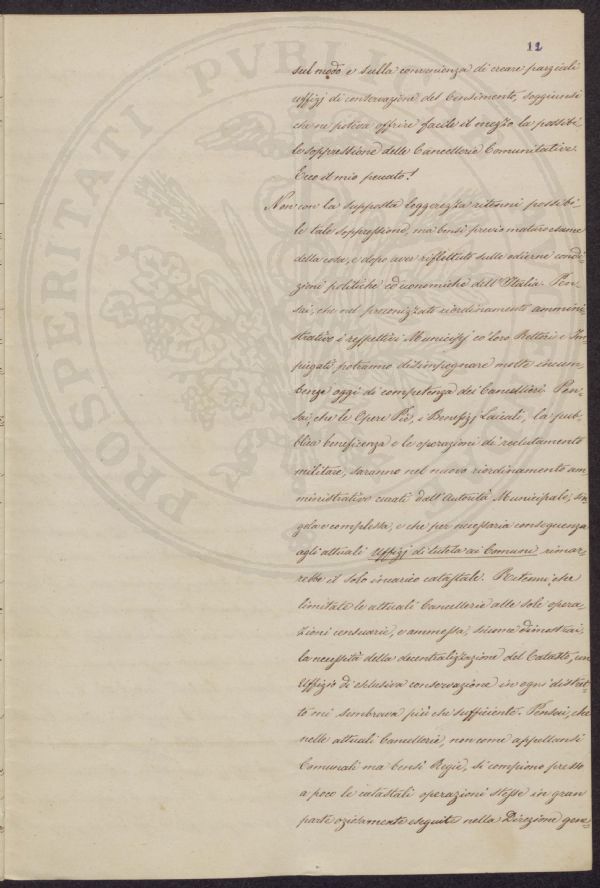 12
PROSPERITATI PVBLI
sul modo e sulla convenienza di creare parziali
uffizj di conservazione del Censimento, soggiunsi
che ne poteva offrire facile il mezzo la possibi-
le soppressione delle Cancellerie Comunitative.
Ecco il mio peccato!
Non con la supposta leggerezza ritenni possibi-
le tale soppressione, ma bensì previo maturo esame
della cosa, e dopo aver riflettuto sulle odierne condi-
zioni politiche ed economiche dell'Italia. Pen-
sai, che nel preconizzato riordinamento ammini
strativo i respettivi Municipj co' loro Rettori e Im
piegati, potranno disimpegnare molte incum-
benze oggi di competenza dei Cancellieri. Pen-
sai, che le Opere Pie, i Benefizj Laicali, la pub-
blica beneficenza e le operazioni di reclutamento
militare, saranno nel nuovo riordinamento am
ministrativo curati dall'Autorità Municipale, sin
gola e complessa, e che per necessaria conseguenza
agli attuali Uffizj di tutela ai Comuni rimar-
rebbe il solo incarico catastale. Ritenni, che
limitate le attuali Cancellerie alle sole opera
zioni censuarie, e ammessa, siccome dimostrai,
la necessità della decentralizzazione del Catasto, un
Uffizio di esclusiva conservazione in ogni distret-
to mi sembrava più che sufficiente. Pensai, che
nelle attuali Cancellerie, non come appellansi
Comunali ma bensì Regie, si compiono presso
a poco le catastali operazioni stesse in gran
parte oziosamente eseguite nella Direzione gene-